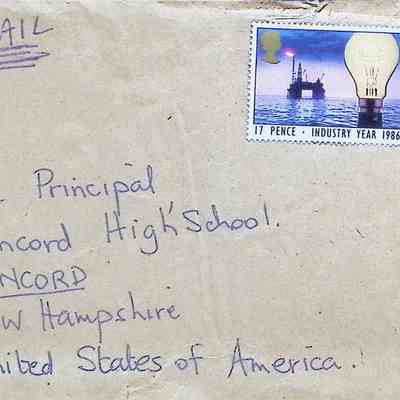 AIL
17 PENCE · INDUSTRY YEAR 1986
Principal
ncord High School.
NCORD
w Hampshire
nited States of America.